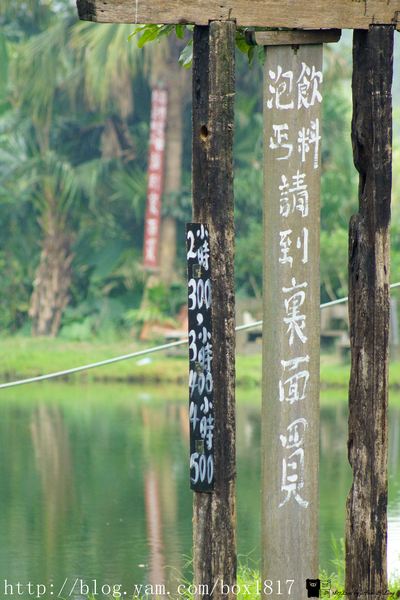 飲料
泡丐
請到裏面買
2小時
300，
3小時
400
4小時
500
http://blog.yam.com/box1817